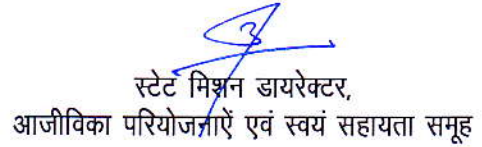 स्टेट मिशन डायरेक्टर,
आजीविका परियोजनाऐं एवं स्वयं सहायता समूह